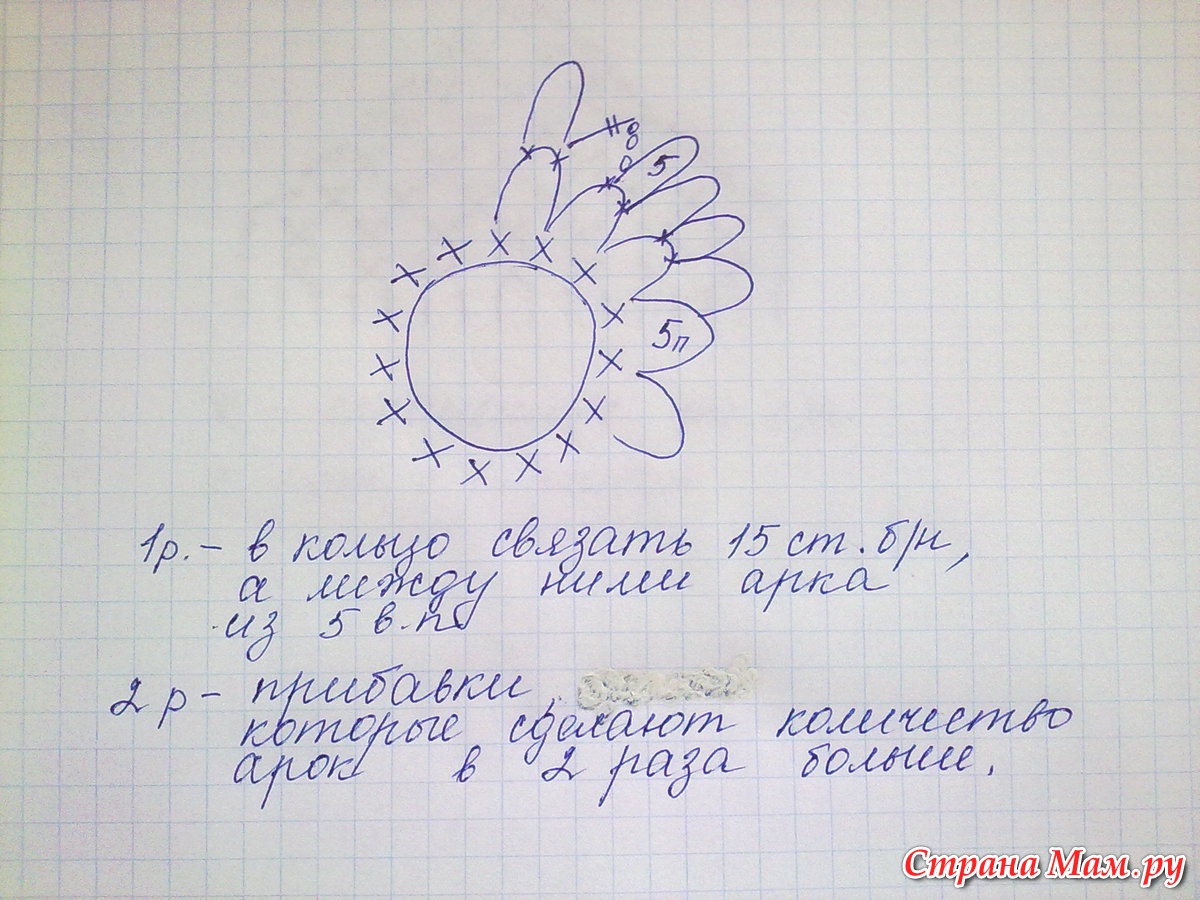 5
5п
1р. – в кольцо связать 15 ст. б/н,
а между ними арка
из 5 в.п.
2 р – прибавки,
которые сделают количество
арок в 2 раза больше.
Страна Мам.ру